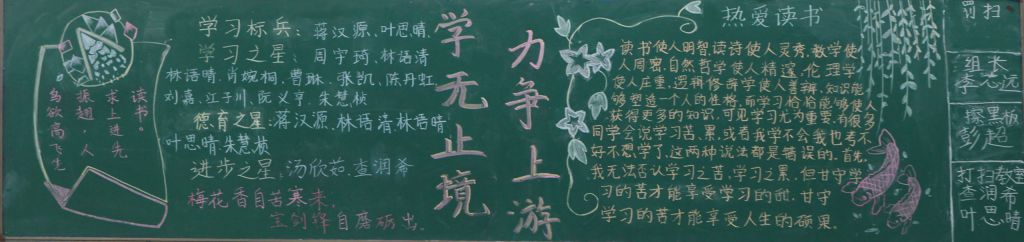 学习标兵：蒋汉源、叶思晴、
学习之星：周宇琦、林语清
林语晴、肖婉桐、曹琳、张凯、陈丹虹
刘嘉、江子川、阮义亨、朱慧桢
德育之星：蒋汉源、林语清、林语晴
叶思晴、朱慧桢
进步之星、汤欣茹、查润希
梅花香自苦寒来，
宝剑锋自磨砺出。
读书。
求上进，先
振翅，人
鸟欲高飞
学无止境
力争上游
热爱读书
读书使人明智，读诗使人灵秀，数学使
人周密，自然哲学使人精邃，伦理学
使人庄重，逻辑修辞学使人善辩。知识能
够塑造一个人的性格，而学习恰恰能够使人
获得更多的知识，可见学习尤为重要。有很多
同学会说学习苦、累，或者我学不会，我也考不
好不想学了，这两种说法都是错误的。首先，
我无法否认学习之苦，学习之累，但甘守学
习的苦才能享受学习的甜，甘守
学习的苦才能享受人生的硕果。
罚扫
组长
李元远
擦黑板
彭超
打扫教室
查润希
叶思晴